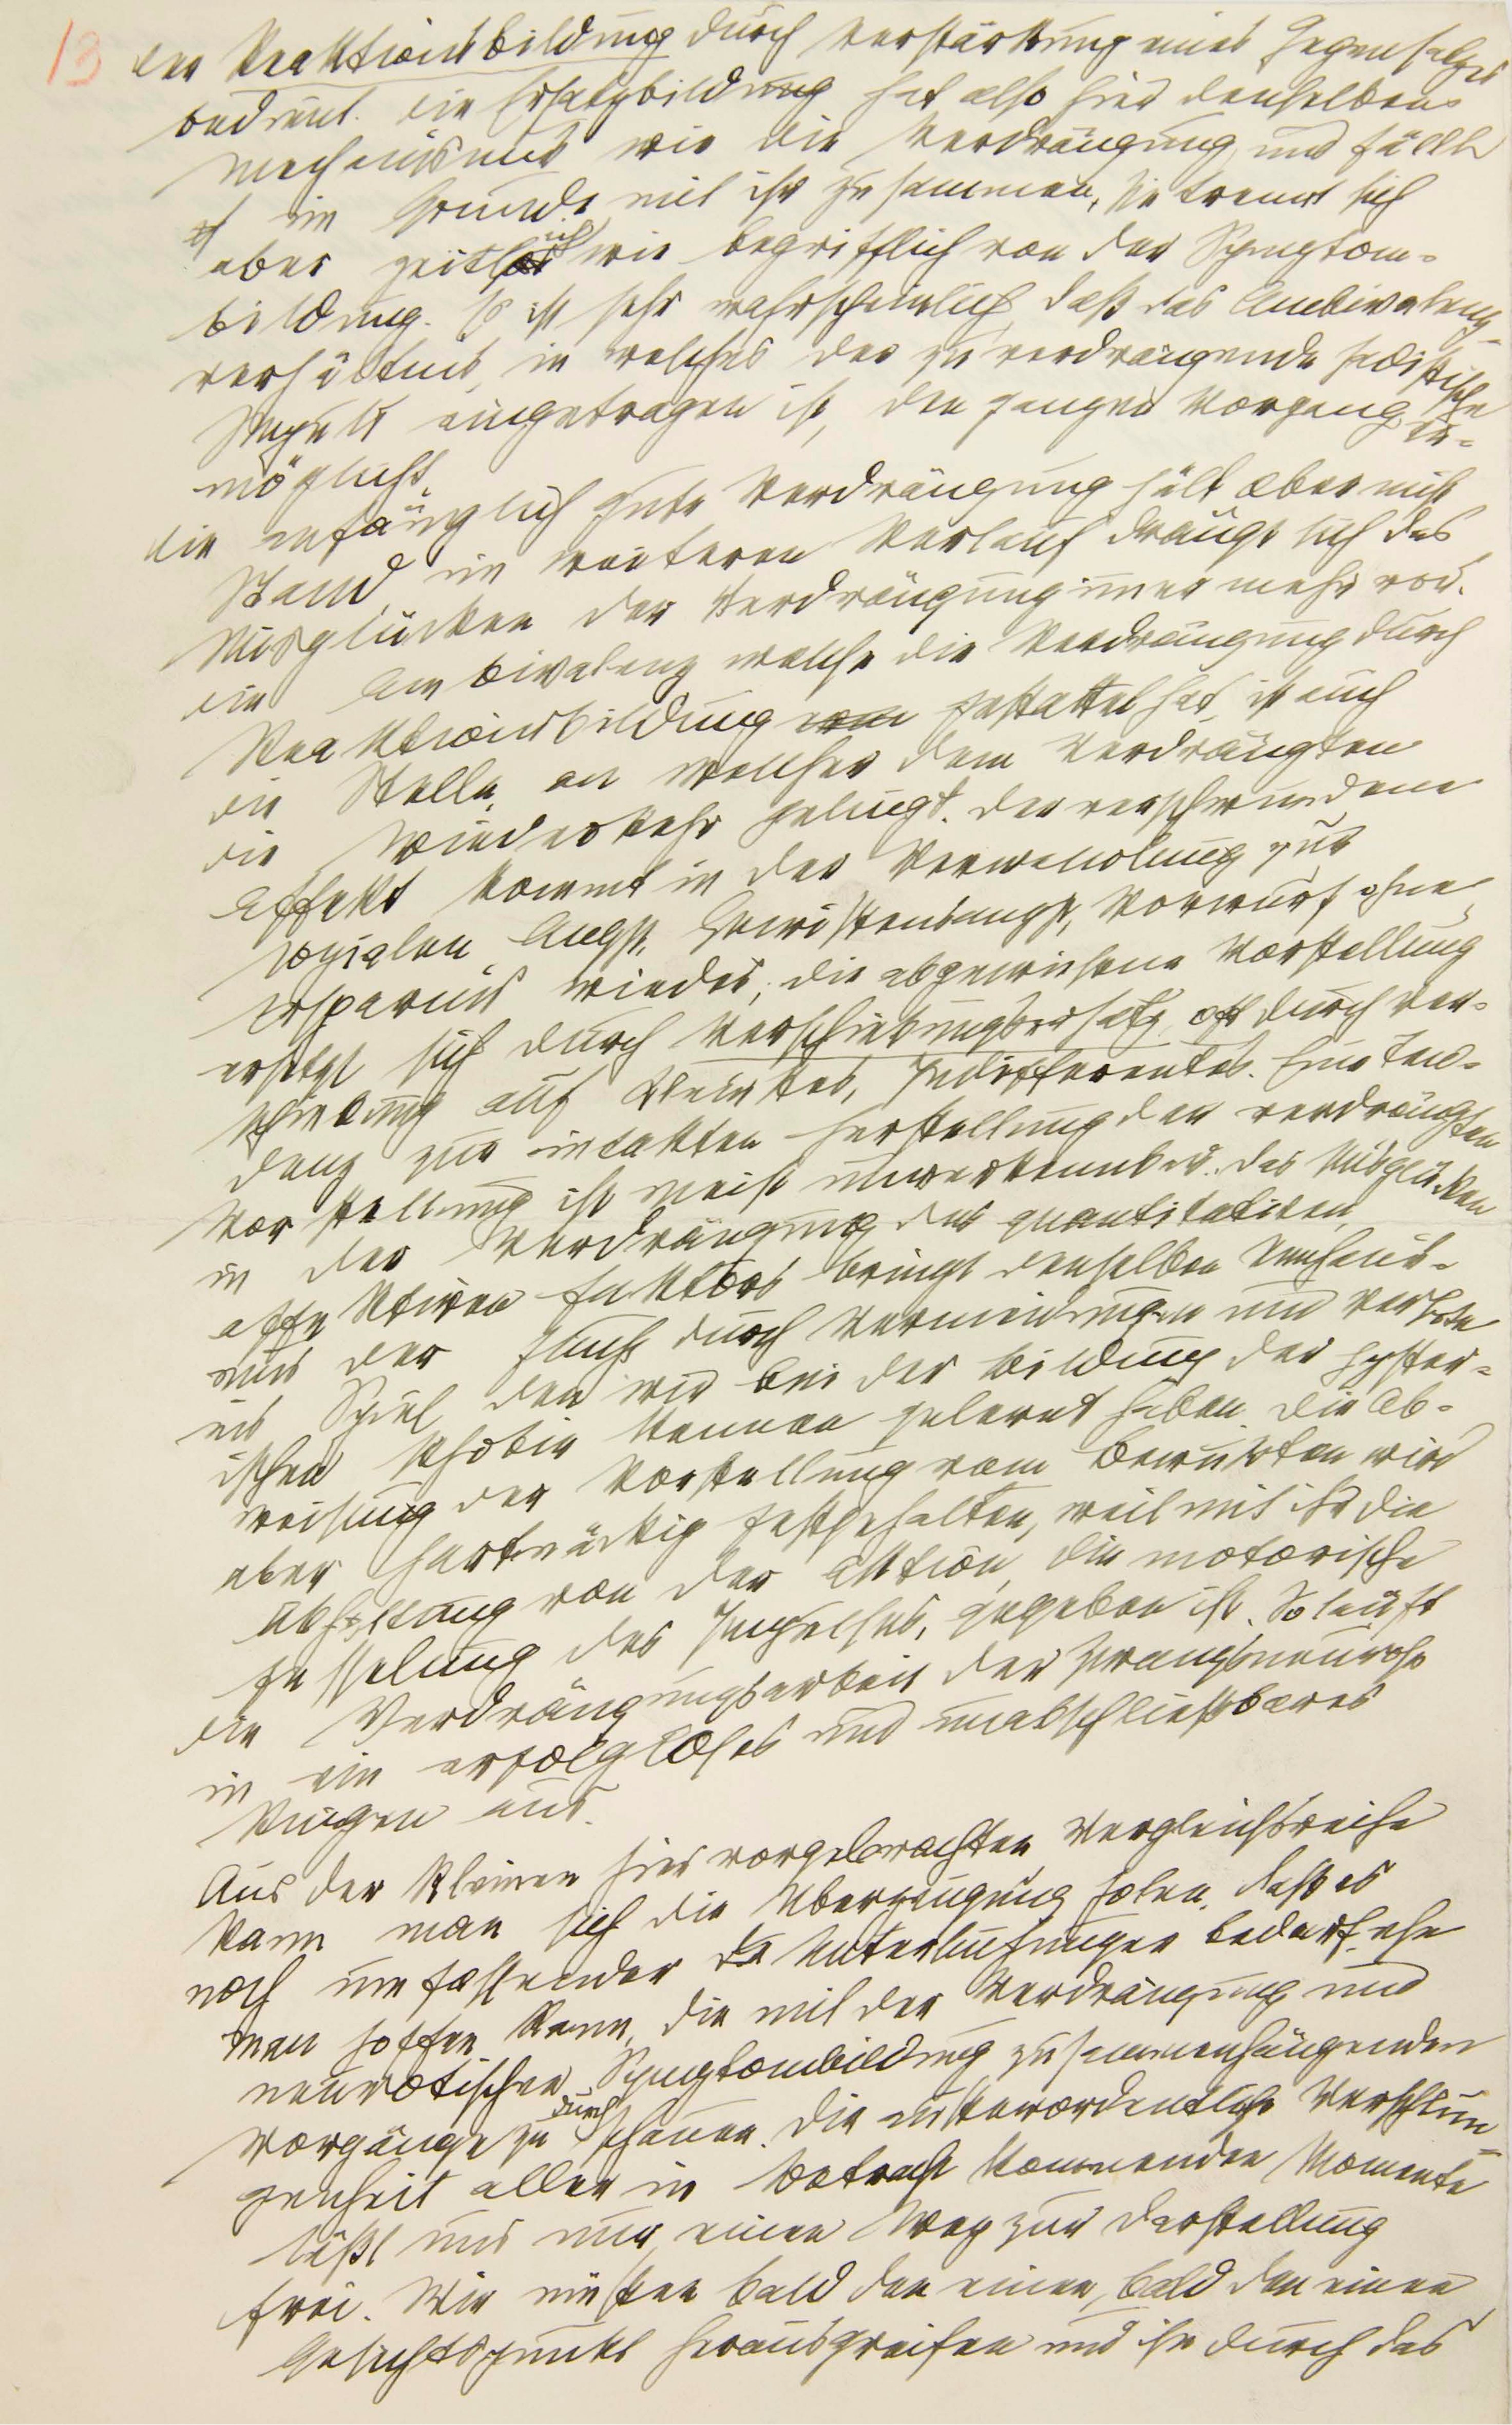 13 der Reaktionsbildung durch Verstärkung eines Gegensatzes
bedient. Die Ersatzbildung hat also hier denselben
Mechanismus wie die Verdrängung und fällt
im Grunde mit ihr zusammen, sie trennt sich
aber zeitlich wie begrifflich von der Symptom-
bildung. Es ist sehr wahrscheinlich, daß das Ambivalenz-
verhältnis, in welches der zu verdrängende sadistische
Impuls eingetragen ist, den ganzen Vorgang er-
möglicht.
Die anfänglich gute Verdrängung hält aber nicht
Stand, im weiteren Verlauf drängt sich das
Misglücken der Verdrängung immer mehr vor.
Die Ambivalenz welche die Verdrängung durch
Reaktionsbildung gestattet hat, ist auch
die Stelle, an welcher dem Verdrängten
die Wiederkehr gelingt. Der verschwundene
Affekt kommt in der Verwandlung zur
sozialen Angst, Gewissensangst, Vorwurf ohne
Ersparnis wieder, die abgewiesene Vorstellung
ersetzt sich durch Verschiebungsersatz, oft durch Ver-
schiebung auf Kleinstes, Indifferentes. Eine Ten-
denz zur intakten Herstellung der verdrängten
Vorstellung ist meist unverkennbar. Das Misglücken
in der Verdrängung des quantitativen,
affektiven Faktors bringt denselben Mechanis-
mus der Flucht durch Vermeidungen und Verbote
ins Spiel, den wir bei der Bildung der hyster-
ischen Phobie kennen gelernt haben. Die Ab-
weisung der Vorstellung vom Bewußten wird
aber hartnäckig festgehalten, weil mit ihr die
Abhaltung von der Aktion, die motorische
Fesselung des Impulses, gegeben ist. So läuft
die Verdrängungsarbeit der Zwangsneurose
in ein erfolgloses und unabschließbares
Ringen aus.
Aus der kleinen hier vorgebrachten Vergleichsreihe
kann man sich die Überzeugung holen, daß es
noch umfassender Untersuchungen bedarf, ehe
man hoffen kann, die mit der Verdrängung und
neurotischen Symptombildung zusammenhängenden
Vorgänge zu durchschauen. Die außerordentliche Verschlun-
genheit aller in Betracht kommenden Momente
läßt uns nur einen Weg zur Darstellung
frei. Wir müssen bald den einen, bald den einen
Gesichtspunkt herausgreifen und ihn durch das